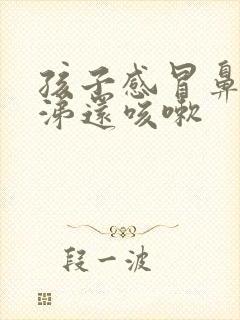 孩子感冒鼻
涕還咳嗽
段一波